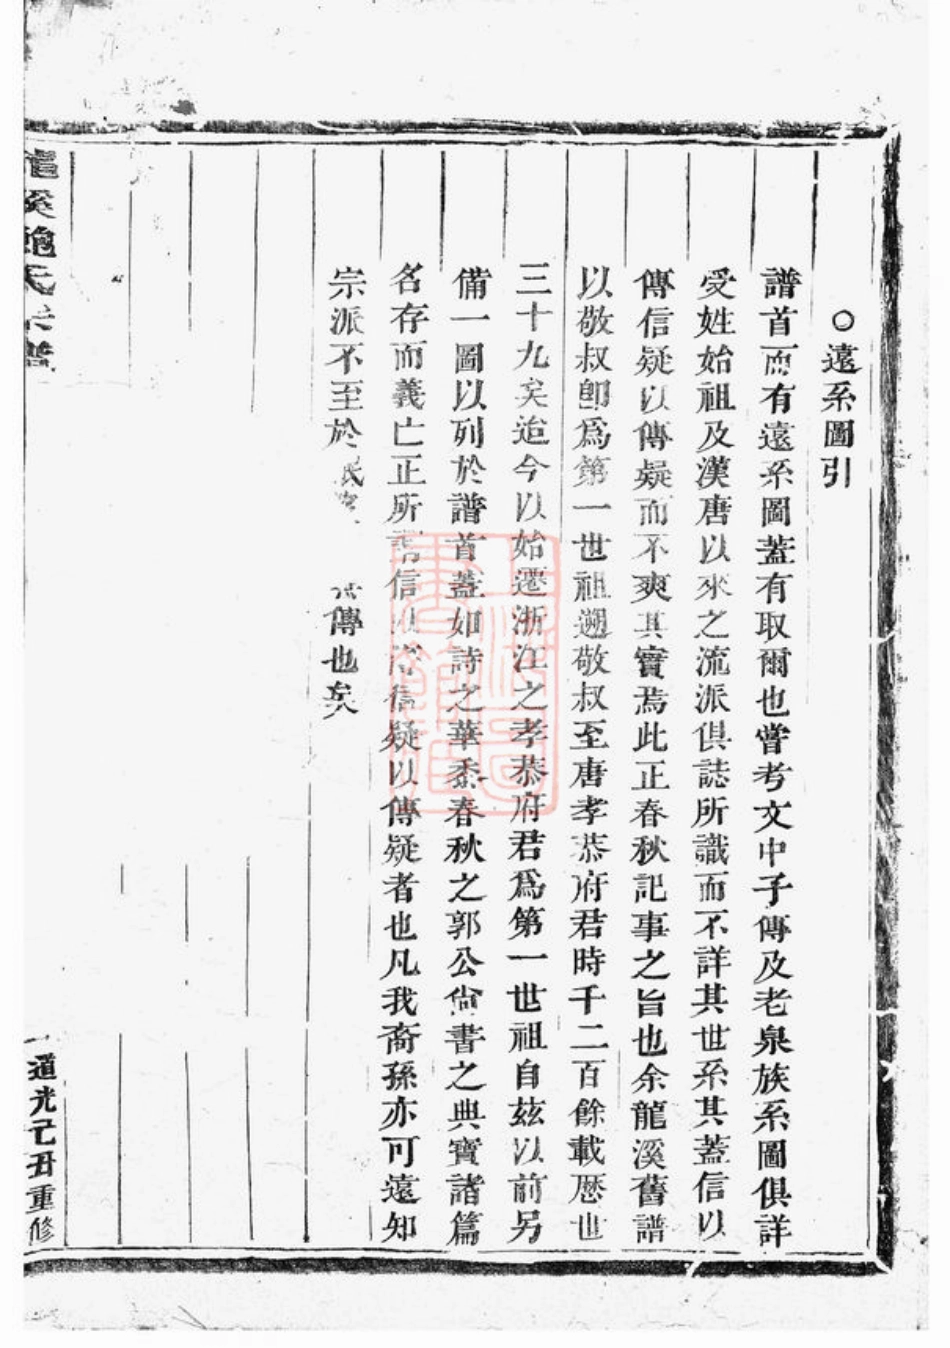 ○遠系圖引
譜首而有遠系圖蓋有取爾也嘗考文中子傳及老泉族系圖俱詳
受姓始祖及漢唐以來之流派俱誌所識而不詳其世系其蓋信以
傳信疑以傳疑而不爽其實焉此正春秋記事之旨也余龍溪舊譜
以敬叔卽爲第一世祖遡敬叔至唐孝恭府君時千二百餘載歷世
三十九矣迨今以始遷浙江之孝恭府君爲第一世祖自茲以前另
備一圖以列於譜首蓋如詩之華黍春秋之郭公尙書之典寶諸篇
名存而義亡正所謂信以傳信疑以傳疑者也凡我裔孫亦可遠知
宗派不至於 傳也矣
龍溪鮑氏宗譜
道光己丑重修